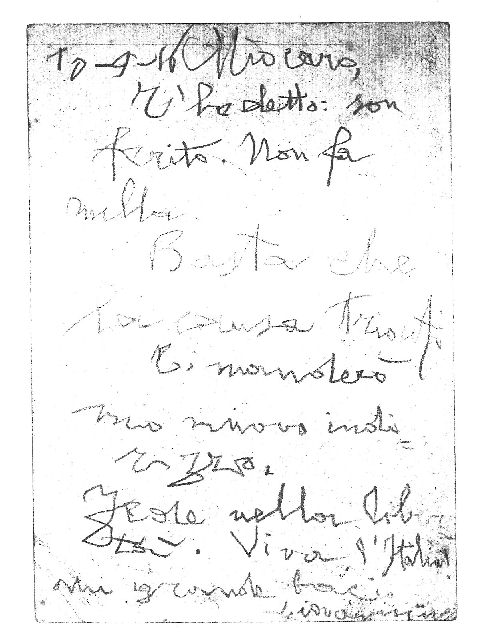 Mio caro,
T'ho detto: son
ferito. Non fa
nulla.
Basta che
la causa trionfi
Ti manderò
mio nuovo indi=
rizzo.
Fede nella lib
Viva l'Italia!
un grande bacio